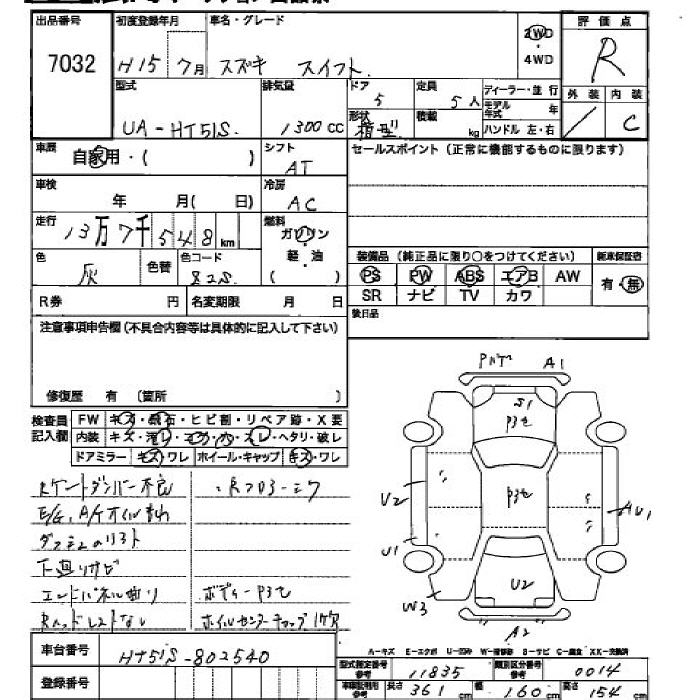 出品番号 初度登録年月 車名・グレード 2WD 評価点
7032 H15 7月 スズキ スイフト ・ 4WD R
型式 排気量 ドア 定員 ディーラー・並行 外装 内装
UA-HT51S 1300cc 5 5人 モデル年式 年 / C
形状 積載 kg ハンドル 左・右
箱型
車歴 自家用・( ) シフト AT セールスポイント (正常に機能するものに限ります)
車検 年 月( 日) 冷房 AC
走行 13万7千548km 燃料 ガソリン・軽・油 ( )
色 灰 色替 色コード 82S 装備品 (純正品に限り○をつけてください) 新車保証書
PS PW ABS エアB AW 有・無
R券 円 名変期限 月 日 SR ナビ TV カワ
注意事項申告欄 (不具合内容等は具体的に記入して下さい) 後日品
修復歴 有 (箇所 )
Pハゲ A1
検査員記入欄 FW キズ・飛石・ヒビ割・リペア跡・X要 S1
内装 キズ・汚レ・コゲ・穴・スレ・ヘタリ・破レ P3セ
ドアミラー キズ・ワレ ホイール・キャップ キズ・ワレ
Rゲートダンパー不良
P3セ
U2 AU1
E/G、A/Tオイル
下廻リサビ U1
U2
エンドパネル曲り ボディーP3セ
W3
Rヘッドレストなし ホイルセンターキャップ1ケ欠
A2
車台番号 HT51S-802540 A-キズ E-エクボ U-凹み W-補修跡 S-サビ C-腐食 XX-交換済
型式指定番号 参考 11835 類別区分番号 参考 0014
登録番号 車庫証明用 参考 長さ 361cm 幅 160cm 高さ 154cm